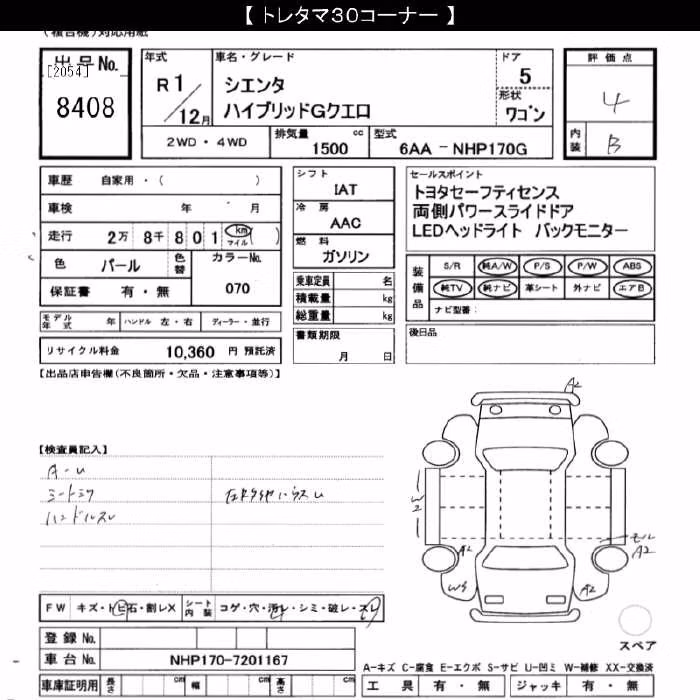 【 トレタマ30コーナー 】
(複合型)対応用紙
出品No. [2054] 8408
年式 R 1/12月
車名・グレード シエンタ ハイブリッドGクエロ
ドア 5
形状 ワゴン
評価点 4
内装 B
2WD ・ 4WD
排気量 1500 cc
型式 6AA - NHP170G
車歴 自家用・( )
車検 年 月
走行 2万 8千 8 0 1 km マイル ( )
色 パール 色替
カラーNo. 070
保証書 有・無
シフト IAT
冷房 AAC
燃料 ガソリン
乗車定員 名
積載量 kg
総重量 kg
セールスポイント
トヨタセーフティセンス
両側パワースライドドア
LEDヘッドライト バックモニター
装備品 S/R 純A/W P/S P/W ABS
純TV 純ナビ 革シート 外ナビ エアB
ナビ型番:
モデル年式 年 ハンドル 左・右 ディーラー・並行
リサイクル料金 10,360 円 預託済
書類期限 月 日
後日品
【出品店申告欄(不良箇所・欠品・注意事項等)】
【検査員記入】
A-U
シートミウ
ハンドルスレ
A2
W2
A2
W3
A2
モル
A2
FW キズ・トビ石・割レX シート内装 コゲ・穴・汚レ・シミ・破レ・スレ
登録No.
車台No. NHP170-7201167
車庫証明用 長さ cm 幅 cm 高さ cm
スペア
A-キズ C-腐食 E-エクボ S-サビ U-凹ミ W-補修 XX-交換済
工具 有・無 ジャッキ 有・無